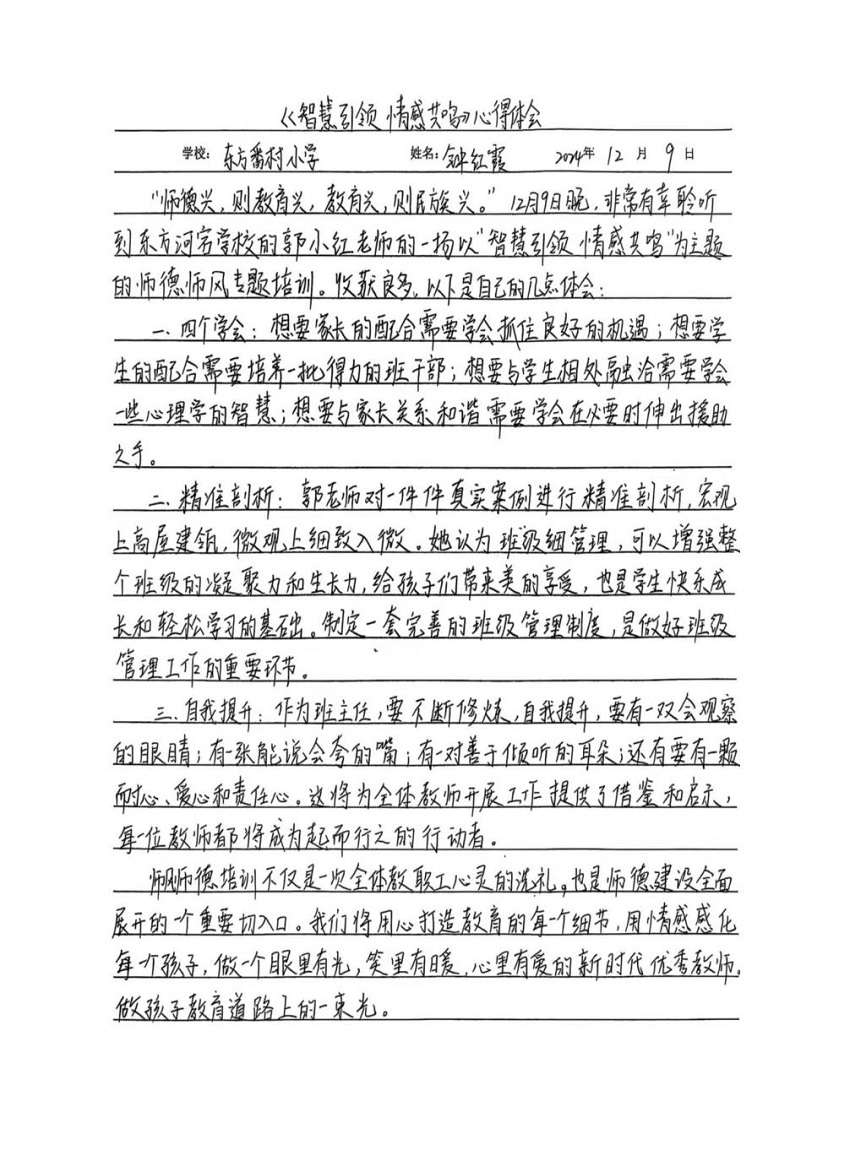 《智慧引领 情感共鸣》心得体会
学校：东方番村小学 姓名：钟红霞 2024年 12 月 9 日
“师德兴，则教育兴，教育兴，则民族兴。”12月9日晚，非常有幸聆听
到东方河宕学校的郭小红老师的一场以“智慧引领 情感共鸣”为主题
的师德师风专题培训。收获良多，以下是自己的几点体会：
一、四个学会：想要家长的配合需要学会抓住良好的机遇；想要学
生的配合需要培养一批得力的班干部；想要与学生相处融洽需要学会
一些心理学的智慧；想要与家长关系和谐需要学会在必要时伸出援助
之手。
二、精准剖析：郭老师对一件件真实案例进行精准剖析，宏观
上高屋建瓴，微观上细致入微。她认为班级细管理，可以增强整
个班级的凝聚力和生长力，给孩子们带来美的享受，也是学生快乐成
长和轻松学习的基础。制定一套完善的班级管理制度，是做好班级
管理工作的重要环节。
三、自我提升：作为班主任，要不断修炼，自我提升，要有一双会观察
的眼睛；有一张能说会夸的嘴；有一对善于倾听的耳朵；还有要有一颗
耐心、爱心和责任心。这将为全体教师开展工作提供了借鉴和启示，
每一位教师都将成为起而行之的行动者。
师风师德培训不仅是一次全体教职工心灵的洗礼，也是师德建设全面
展开的一个重要切入口。我们将用心打造教育的每一个细节，用情感感化
每一个孩子，做一个眼里有光，笑里有暖，心里有爱的新时代优秀教师，
做孩子教育道路上的一束光。